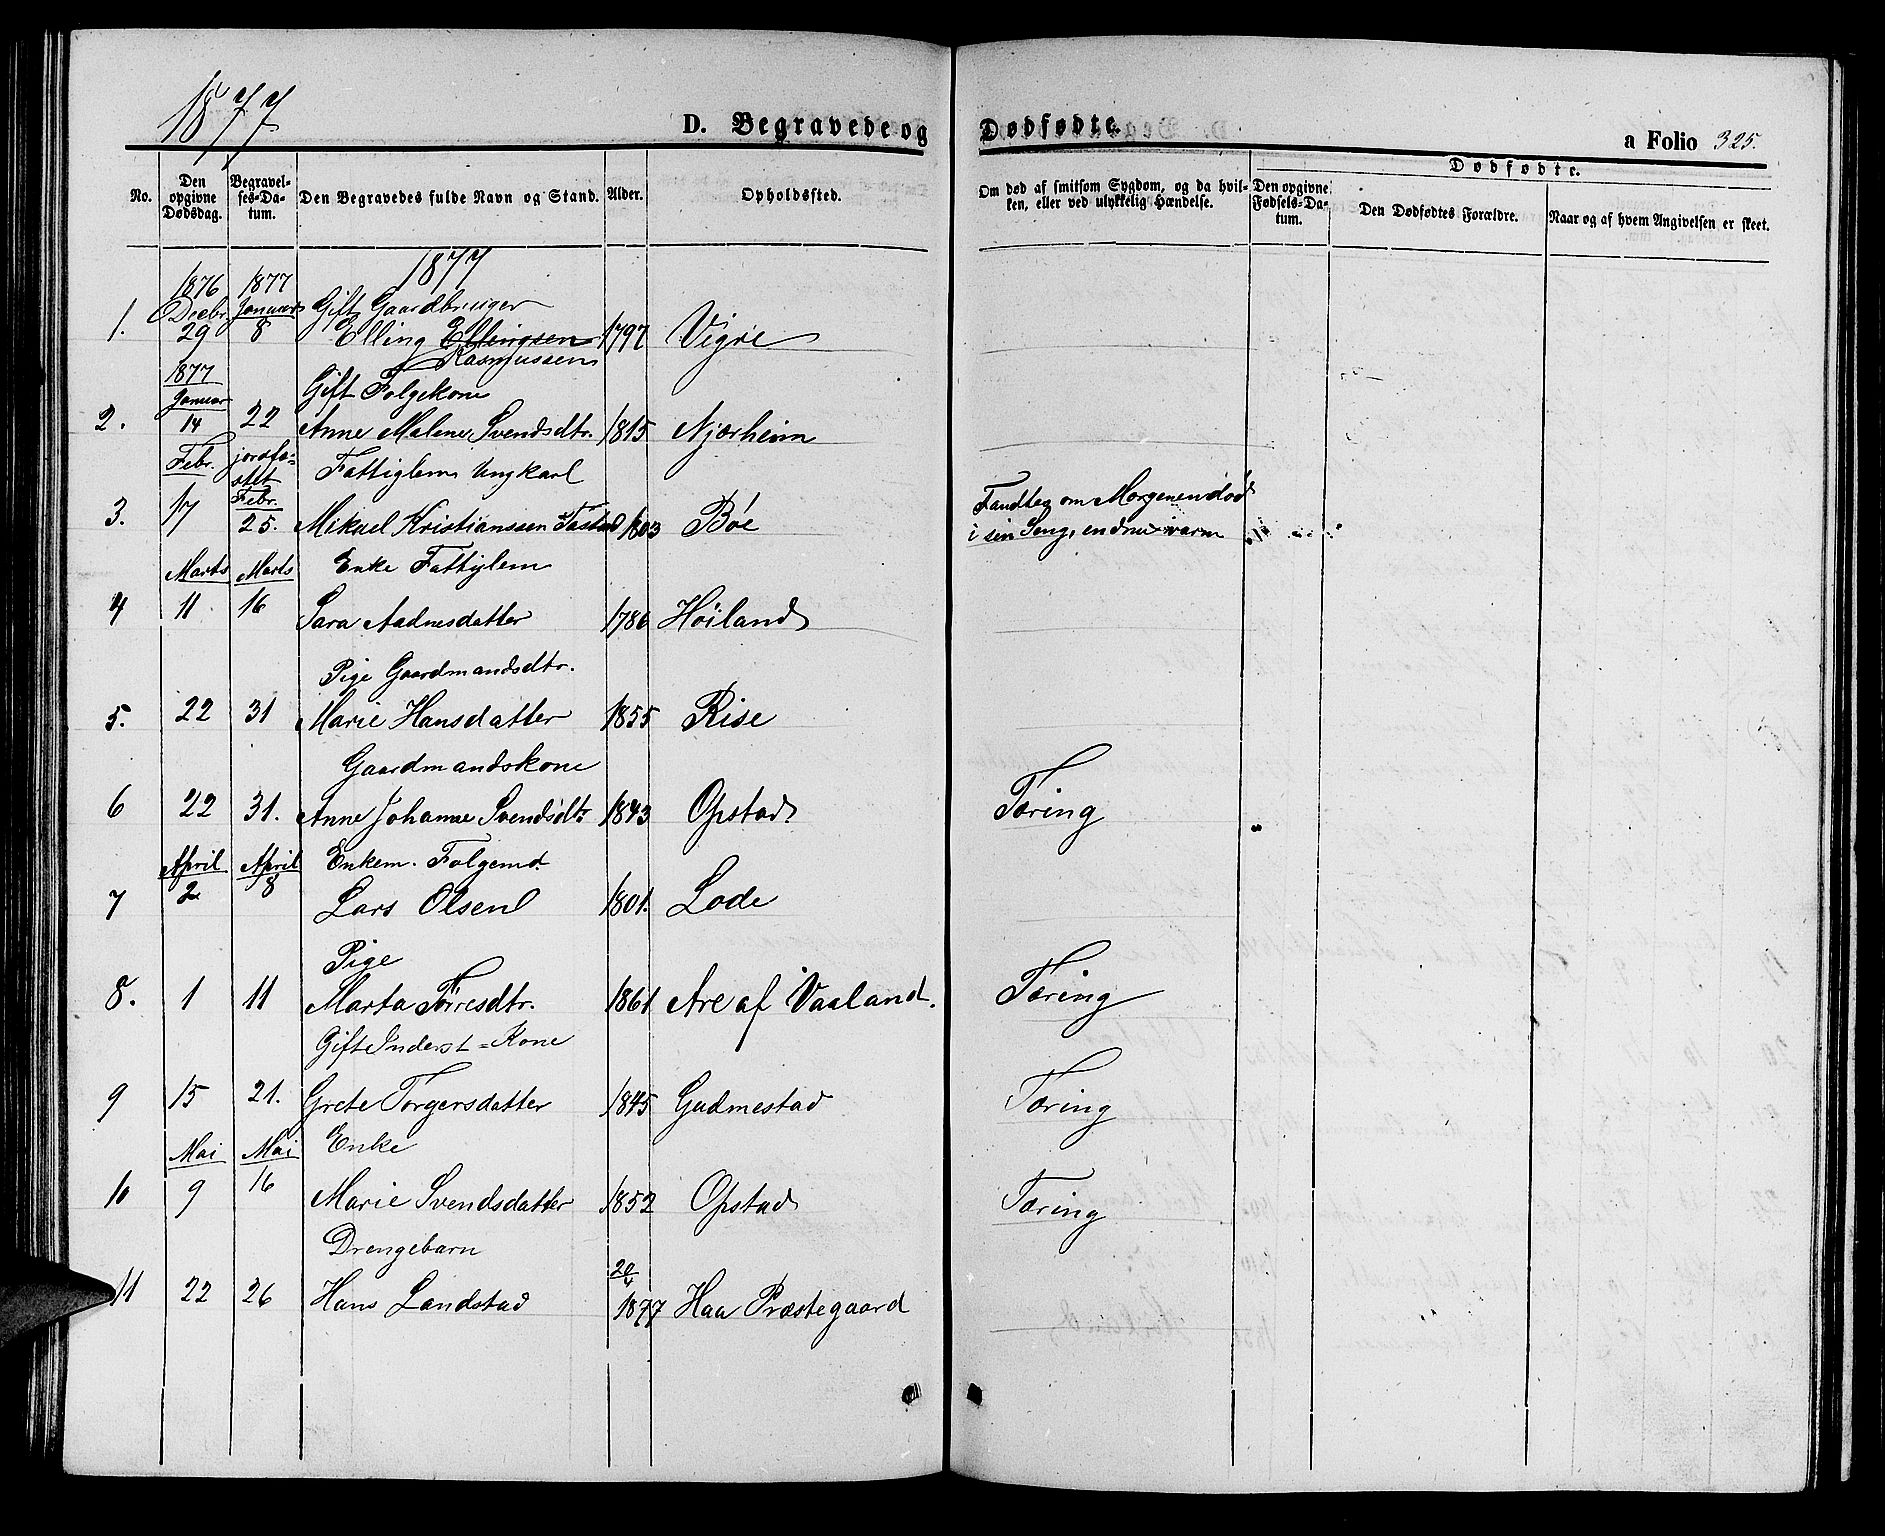 1877
D. Begravede og Dødfødte.
a Folio 325.
No.
Den opgivne Dødsdag.
Begravelses-Datum.
Den Begravedes fulde Navn og Stand.
Alder.
Opholdsfted.
Om død af smitsom Sygdom, og da hvilken, eller ved ulykkelig Hændelse.
Den opgivne Fødsels-Datum.
Dødfødte.
Den Dødfødtes Forældre.
Naar og af hvem Angivelsen er skeet.
1877
1876 1877
Decbr. Januar Gift Gaardbruger
1. 29 8 Elling Ellingsen 1797 Vigre
Rasmussen
1877
Januar Gift Folgekone
2. 14 22 Anne Malene Svendsdtr. 1815 Njærheim
Febr. jordfæstet Febr. Fattiglem Ungkarl
3. 17 25. Mikael Kristianssen Tastad 1803 Bøe Fandtes om Morgenen død
i sin Seng, endnu varm
Marts Marts Enke Fattiglem
4 11 16 Sara Aadnesdatter 1786 Høiland
Pige Gaardmandsdtr.
5. 22 31 Marie Hansdatter 1855 Rise
Gaardmandskone
6 22 31. Anne Johanne Svendsdtr 1843 Opstad Tæring
April April Enkem. Folgemd.
7 2 8 Lars Olsen 1801. Lode
Pige
8. 1 11 Marta Tørresdtr. 1861 Are af Vaaland. Tæring
Gift Inderst-Kone
9 15 21. Grete Torgersdatter 1845 Gudmestad Tæring
Mai Mai Enke
10 9 16 Marie Svendsdatter 1852 Opstad Tæring
Drengebarn
11 22 26 Hans Landstad 20/4 1877 Haa Præstegaard